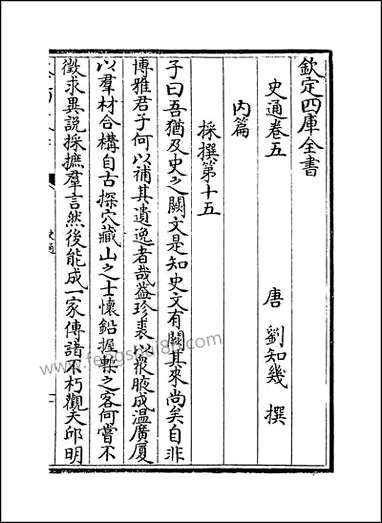 欽定四庫全書
史通卷五
唐 劉知幾 撰
內篇
採撰第十五
子曰吾猶及史之闕文是知史文有闕其來尚矣自非
博雅君子何以補其遺逸者哉蓋珍裘以衆腋成温廣厦
以羣材合構自古探穴藏山之士懷鉛握槧之客何嘗不
徵求異說採摭羣言然後能成一家傳諸不朽觀夫邱明
史通